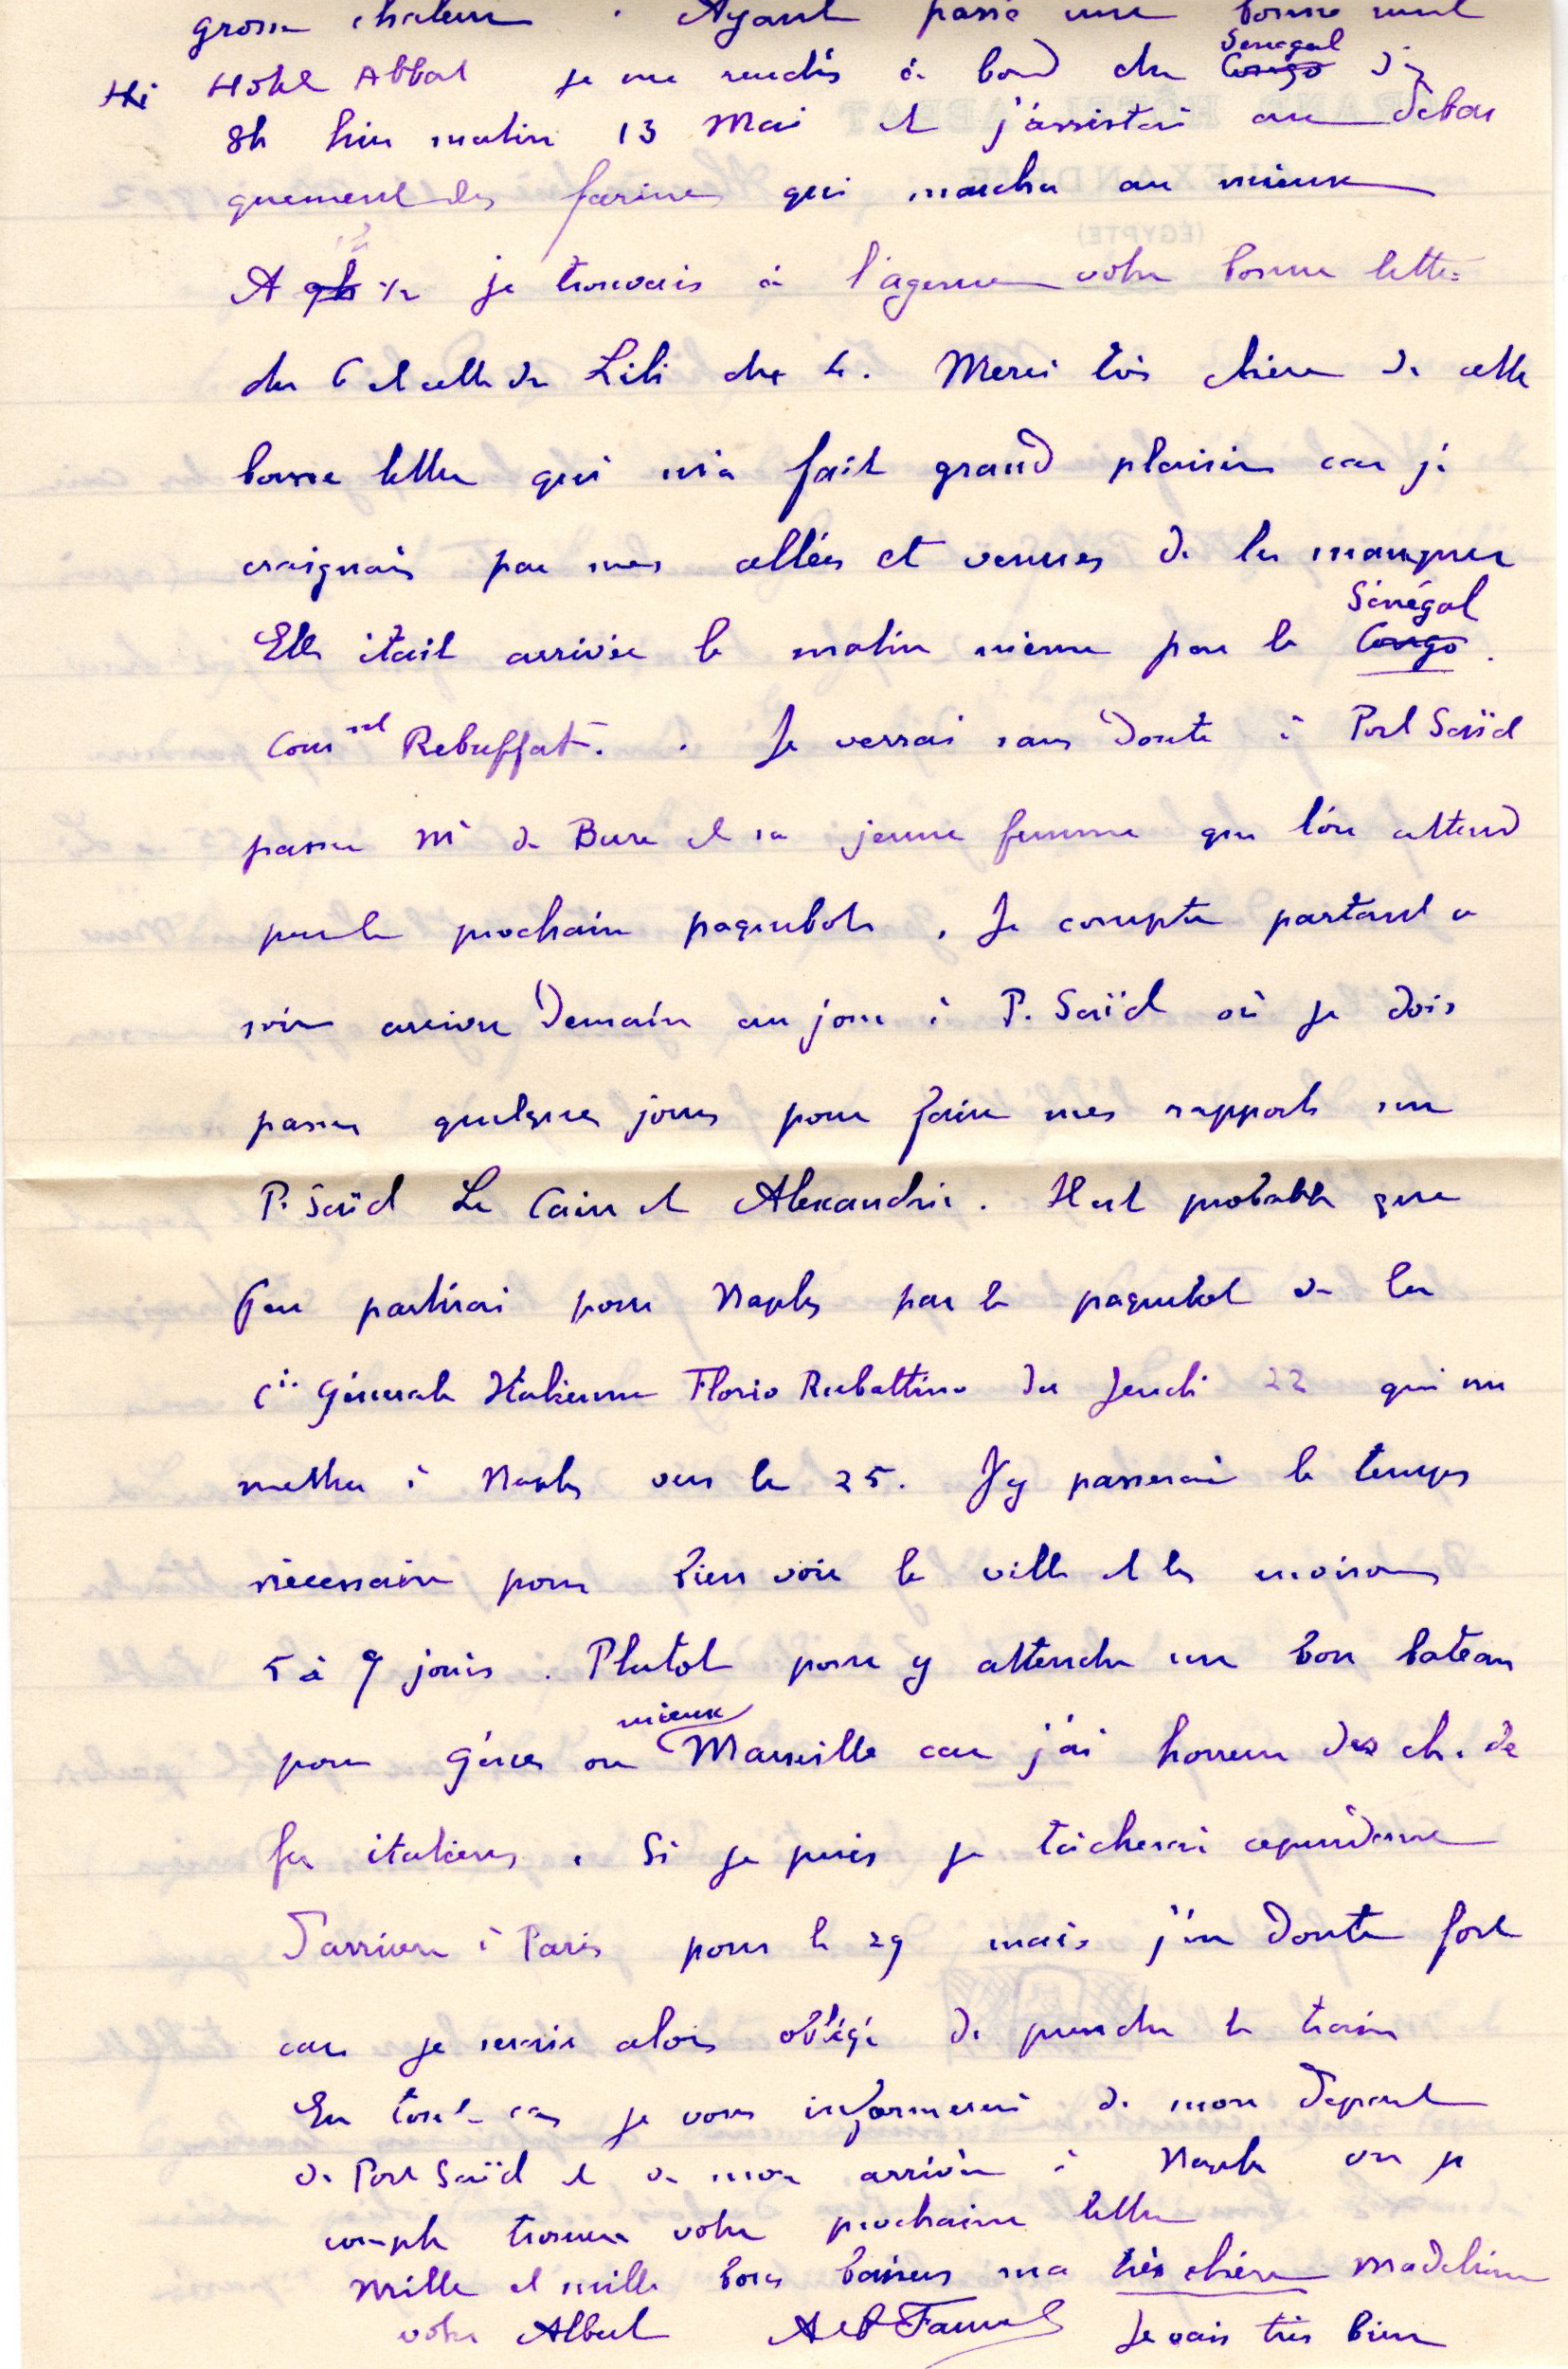 grosse chaleur. Ayant passé une bonne nuit
Hôtel Abbat je me rendis à bord du Congo Sénégal dès
8h hier matin 13 Mai et j'assistai au débar
quement des farines qui marcha au mieux
A 9h ½ je trouvais à l'agence votre bonne lettre
du 6 et celle de Lili du 4. Merci très chère de cette
bonne lettre qui m'a fait grand plaisir car je
craignais par mes allées et venues de la manquer
Elle était arrivée le matin même par le Congo Sénégal.
Rebuffat. Je verrai sans doute à Port Saïd
passer Mr de Bure et sa jeune femme que l'on attend
par le prochain paquebot. Je compte partant ce
soir arriver demain au jour à P. Saïd où je dois
passer quelques jours pour faire mes rapports sur
P. Saïd Le Caire et Alexandrie. Il est probable que
j'en partirai pour Naples par le paquebot de la
Cie Générale Italienne Florio Rubattino du Jeudi 22 qui me
mettra à Naples vers le 25. J'y passerai le temps
nécessaire pour bien voir la ville et les environs
5 à 7 jours. Plutot pour y attendre un bon bateau
pour Gênes ou mieux Marseille car j'ai horreur des ch. de
fer italiens. Si je puis je tâcherai cependant
d'arriver à Paris pour le 29 mais j'en doute fort
car je serais alors obligé de prendre le train
En tout cas je vous informerai de mon départ
de Port Saïd et de mon arrivée à Naples où je
compte trouver votre prochaine lettre
Mille et mille bons baisers ma très chère Madeleine
votre Albert Je vais très bien